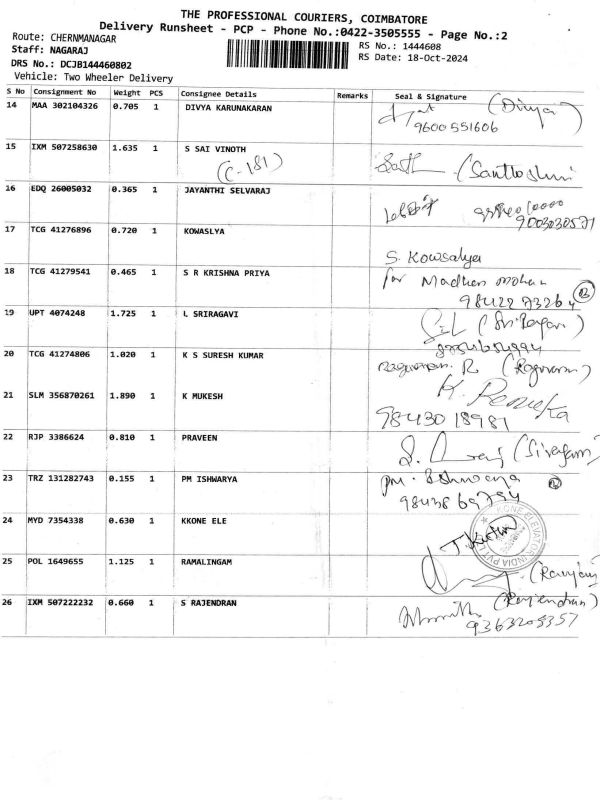 THE PROFESSIONAL COURIERS, COIMBATORE
Delivery Runsheet - PCP - Phone No.:0422-3505555 - Page No.:2
Route: CHERNMANAGAR
RS No.: 1444608
Staff: NAGARAJ
RS Date: 18-Oct-2024
DRS No.: DCJB144460802
Vehicle: Two Wheeler Delivery
S No Consignment No Weight PCS Consignee Details Remarks Seal & Signature
14 MAA 302104326 0.705 1 DIVYA KARUNAKARAN (Divya)
9600551606
15 IXM 507258630 1.635 1 S SAI VINOTH (Santhoshini
(C-181)
16 EDQ 26005032 0.365 1 JAYANTHI SELVARAJ
9003030571
17 TCG 41276896 0.720 1 KOWASLYA
S. Kowsalya
18 TCG 41279541 0.465 1 S R KRISHNA PRIYA for Madhan mohan
19 UPT 4074248 1.725 1 L SRIRAGAVI
20 TCG 41274806 1.020 1 K S SURESH KUMAR
21 SLM 356870261 1.890 1 K MUKESH K. Renuka
9843018981
22 RJP 3386624 0.810 1 PRAVEEN
23 TRZ 131282743 0.155 1 PM ISHWARYA PM. Ishwarya
24 MYD 7354338 0.630 1 KKONE ELE
25 POL 1649655 1.125 1 RAMALINGAM
26 IXM 507222232 0.660 1 S RAJENDRAN (Rajendran)